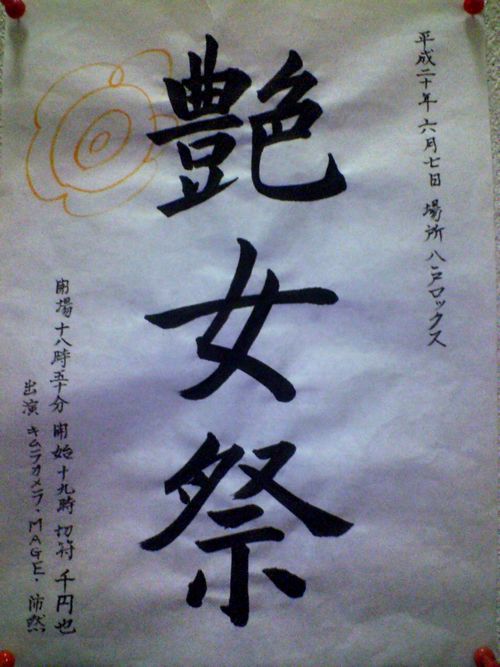 平成二十年 六月七日 場所 八戸ロックス
艶女祭
開場 十八時五十分 開始 十九時 切符 千円也
出演 キムラカメラ・MAGE・沛然